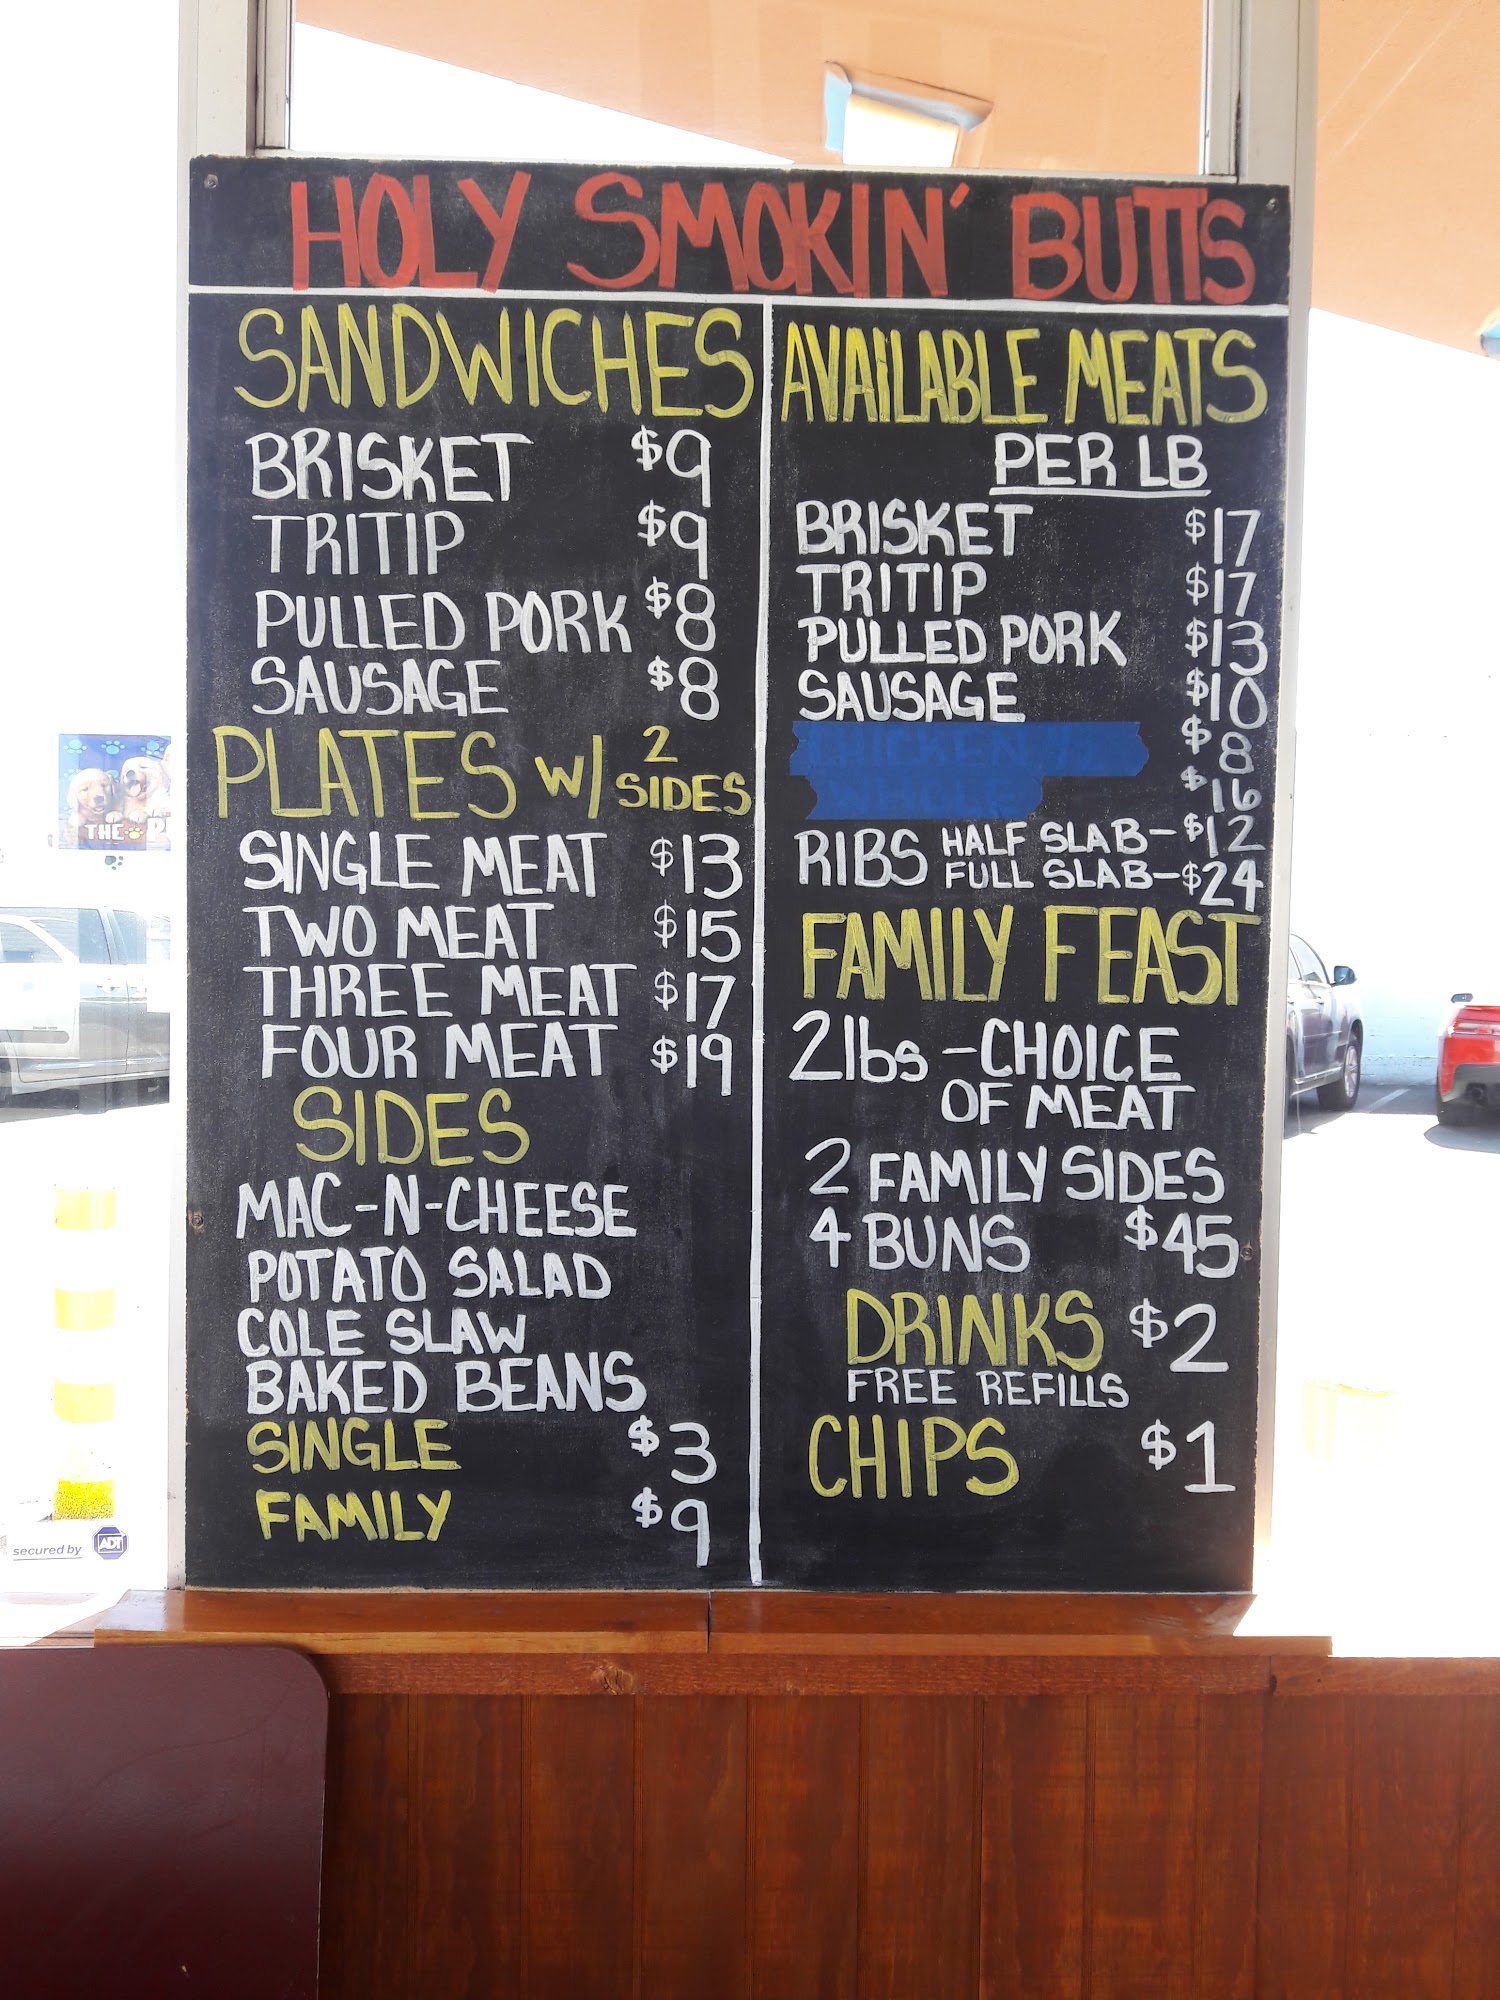 HOLY SMOKIN' BUTTS
SANDWICHES
BRISKET $9
TRITIP $9
PULLED PORK $8
SAUSAGE $8
PLATES W/ 2 SIDES
SINGLE MEAT $13
TWO MEAT $15
THREE MEAT $17
FOUR MEAT $19
SIDES
MAC-N-CHEESE
POTATO SALAD
COLE SLAW
BAKED BEANS
SINGLE $3
FAMILY $9
AVAILABLE MEATS
PER LB
BRISKET $17
TRITIP $17
PULLED PORK $13
SAUSAGE $10
$8
$16
RIBS HALF SLAB-$12
FULL SLAB-$24
FAMILY FEAST
2lbs -CHOICE
OF MEAT
2 FAMILY SIDES
4 BUNS $45
DRINKS $2
FREE REFILLS
CHIPS $1
THE
secured by ADT